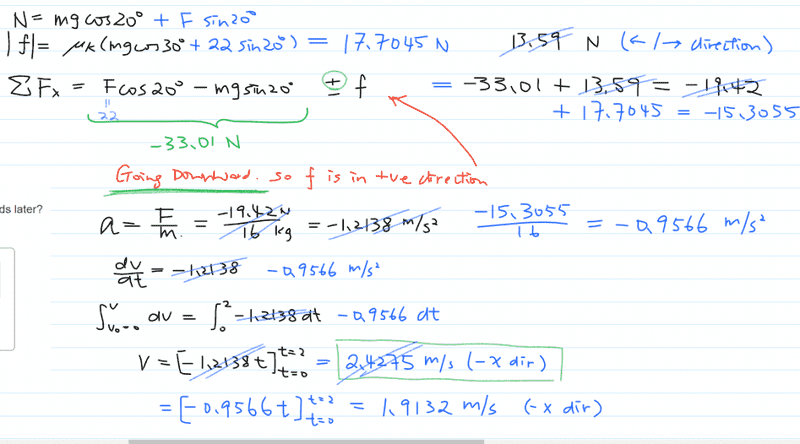 N = mg cos20° + F sin20°
|f| = μk(mg cos30° + 22 sin20°) = 17.7045 N 13.59 N (←/→ direction)
ΣFx = Fcos20° - mg sin20° ± f = -33.01 + 13.59 = -19.42
22 + 17.7045 = -15.3055
-33.01 N
Going Downward. so f is in +ve direction
ds later?
a = F/m = -19.42 N/16 kg = -1.2138 m/s² -15.3055/16 = -0.9566 m/s²
dv/dt = -1.2138 -0.9566 m/s²
∫_{v₀=0}^{v} dv = ∫_0^2 -1.2138 dt -0.9566 dt
V = [-1.2138 t]_{t=0}^{t=2} = 2.4275 m/s (-x dir)
= [-0.9566 t]_{t=0}^{t=2} = 1.9132 m/s (-x dir)